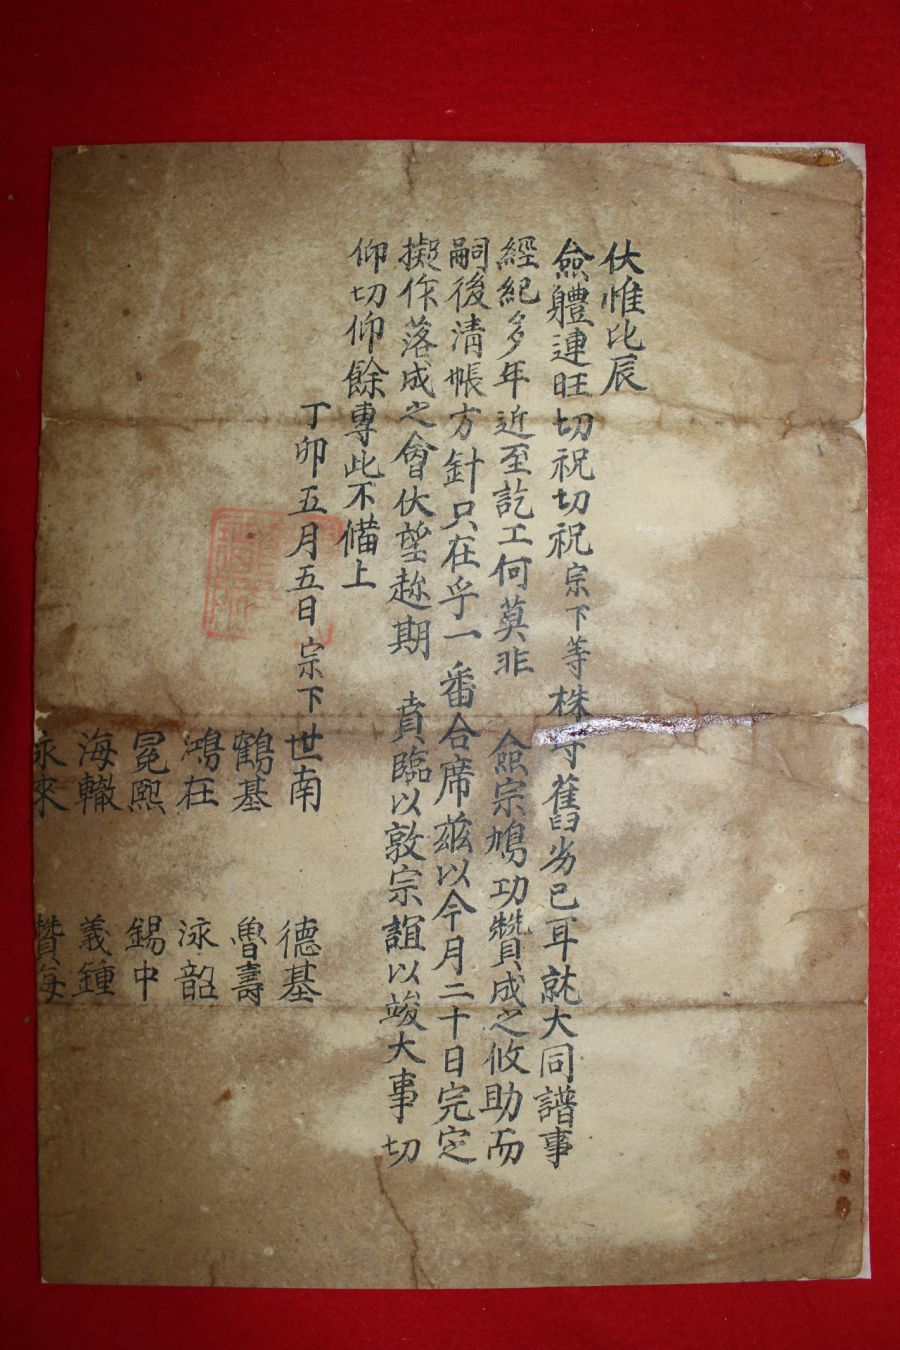 伏惟比辰
僉體連旺切祝切祝宗下等株守舊劣已耳就大同譜事
經紀多年近至訖工何莫非 僉宗鳩功贊成之攸助而
嗣後清帳方針只在乎一番合席玆以今月二十日完定
擬作落成之會伏望趂期 賁臨以敦宗誼以竣大事切
仰切仰餘專此不備上
丁卯五月五日宗下世南 德基
鶴基 魯壽
鴻在 泳韶
冕熙 錫中
海轍 義鍾
泳來 贊海